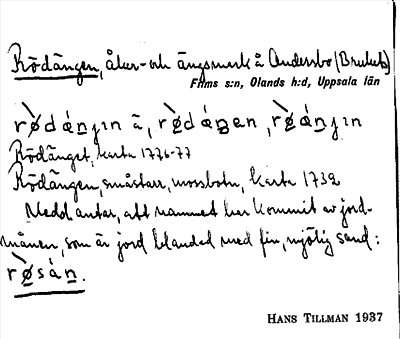 Rödängen, åker- och ängsmark å Andersbo (Bruket)
Films s:n, Olands h:d, Uppsala län
Rödänget, karta 1776-77
Rödängen, småstarr, mossbotn, Karta 1732
Medd. antar, att namnet har kommit av jord-
månen, som är jord blandad med fin, mjölig sand:
HANS TILLMAN 1937